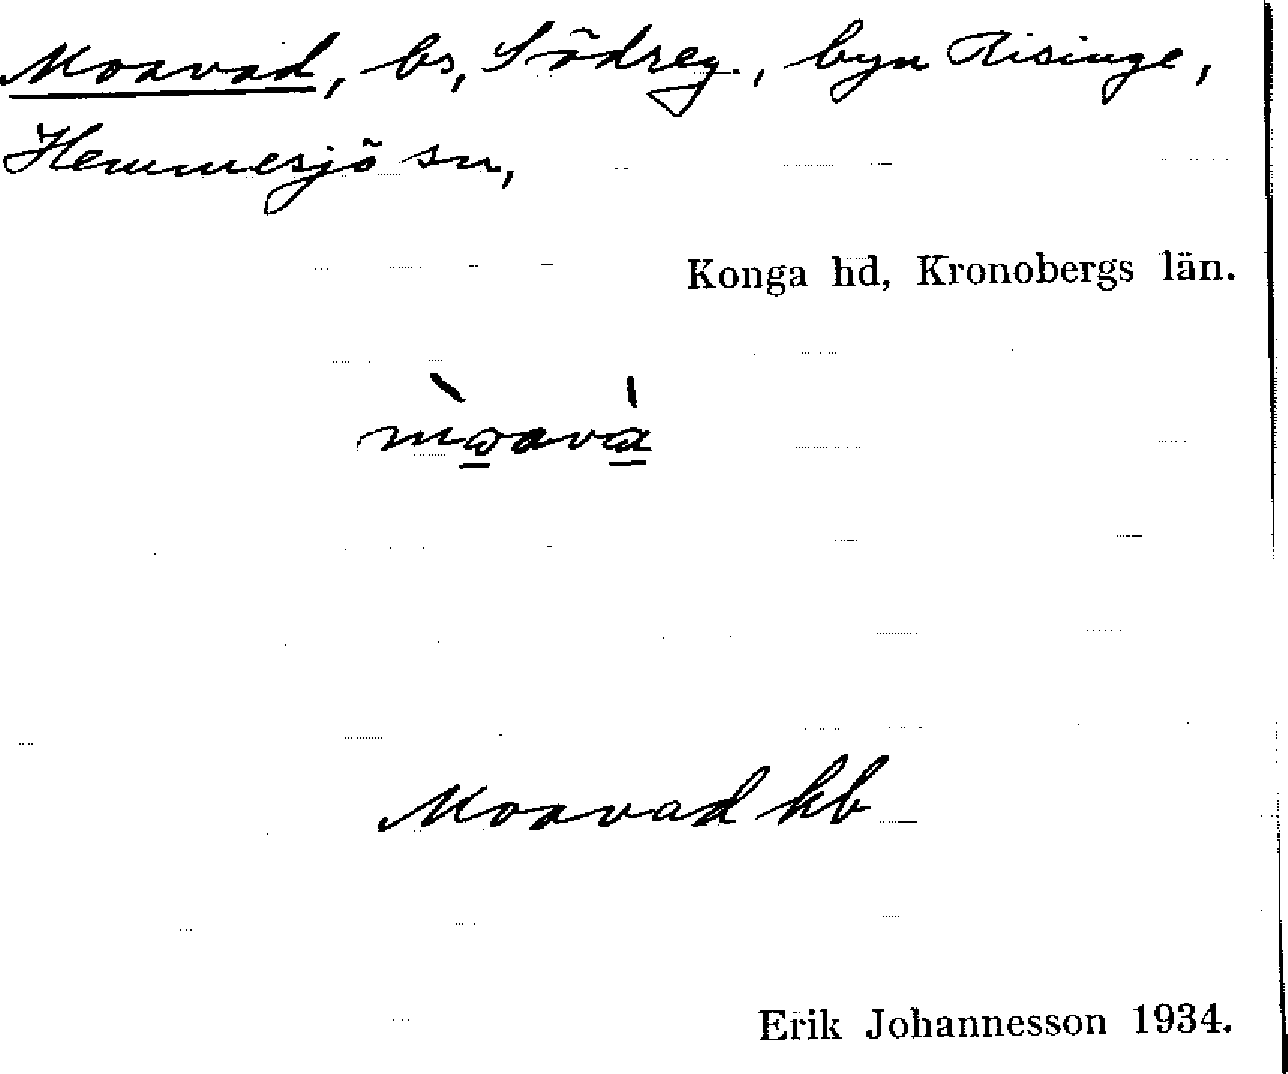 Moavad, bs, Södreg., byn Risinge,
Hemmesjö sn,
Konga hd, Kronobergs län.
mòava̍
Moavad kb
Erik Johannesson 1934.